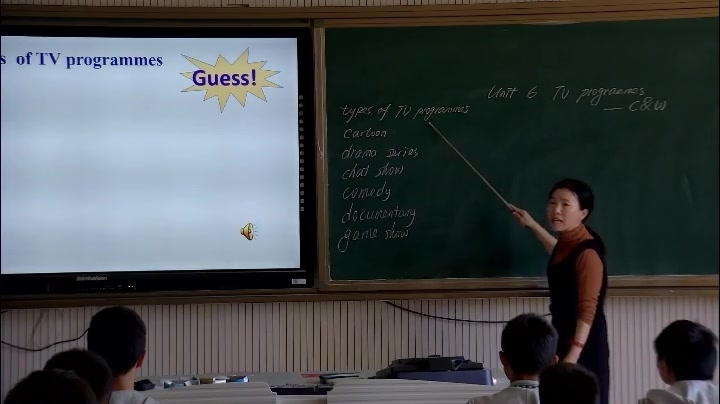 s of TV programmes
Guess!
Unit 6 TV programmes
— C&W
types of TV programmes
cartoon
drama series
chat show
comedy
documentary
game show